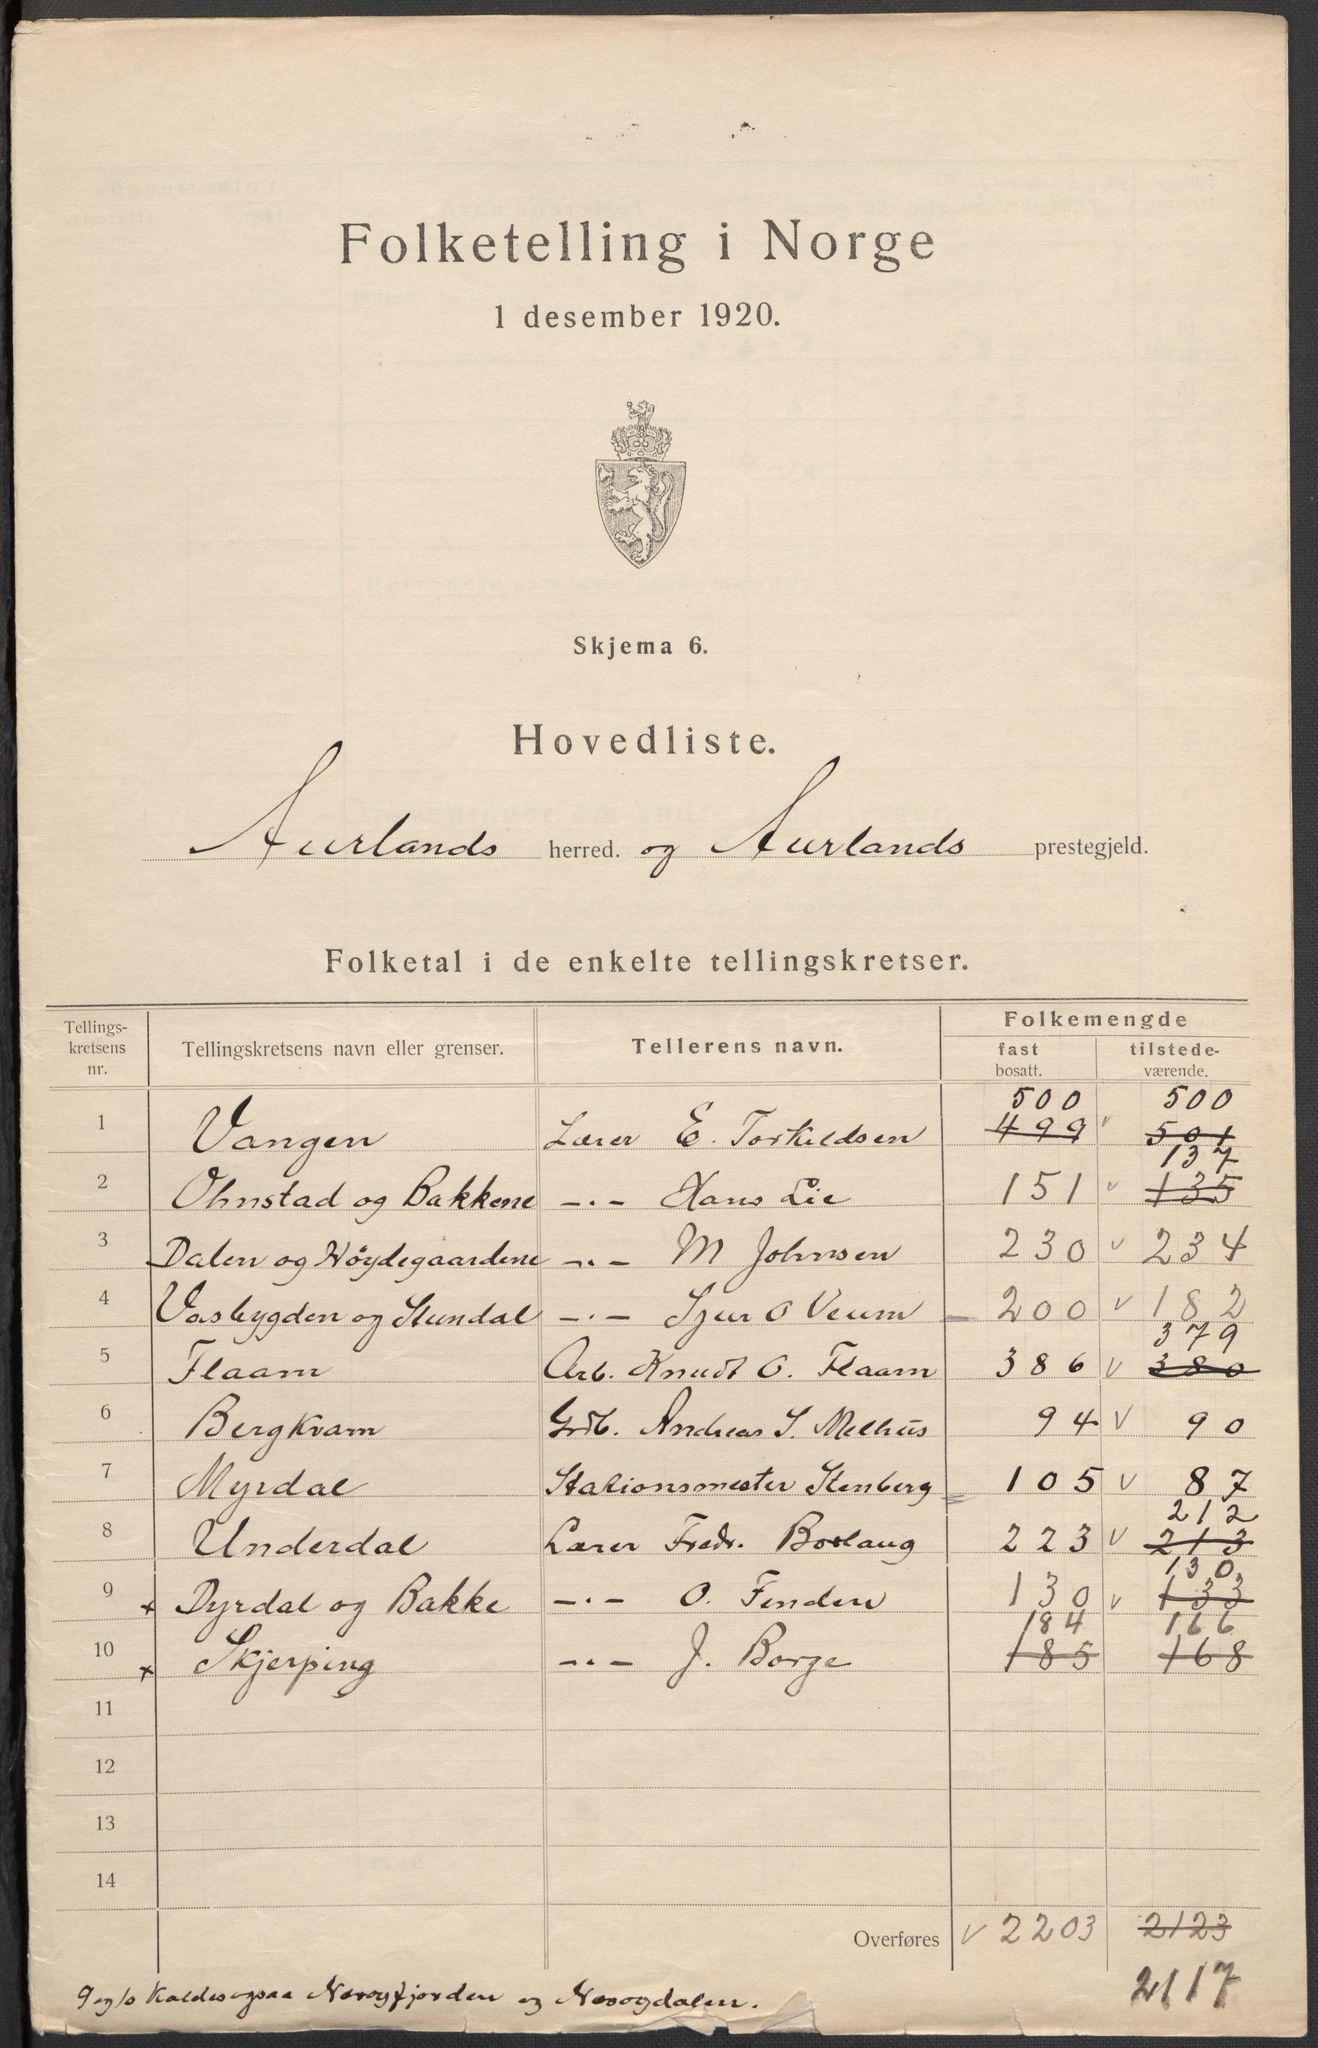 Folketelling i Norge
1 desember 1920.
Skjema 6.
Hovedliste.
Aurlands herred. og Aurlands prestegjeld.
Folketal i de enkelte tellingskretser.
Tellings-kretsens nr. Tellingskretsens navn eller grenser. Tellerens navn. Folkemengde fast bosatt. tilstede-værende.
500 500
1 Vangen Lærer E. Torkildsen 499 v 501
137
2 Ohnstad og Bakkene -"- Hans Lie 151 v 135
3 Dalen og Høydegaardene -"- M Johnsen 230 v 234
4 Vasbygden og Stundal -"- Sjur O Veum 200 v 182
379
5 Flaam Arb. Knudt O. Flaam 386 v 380
6 Bergkvam Grdb. Andreas S. Melhus 94 v 90
7 Myrdal Stationsmester Stenberg 105 v 87
212
8 Underdal Lærer Fredr. Borlaug 223 v 213
130
9 x Dyrdal og Bakke -"- O. Fenden 130 v 133
184 166
10 x Skjerping -"- J. Borge 185 168
11
12
13
14
Overføres v 2203 2123
2117
9 og 10 kaldes ogsaa Nærøyfjorden og Nærøydalen.